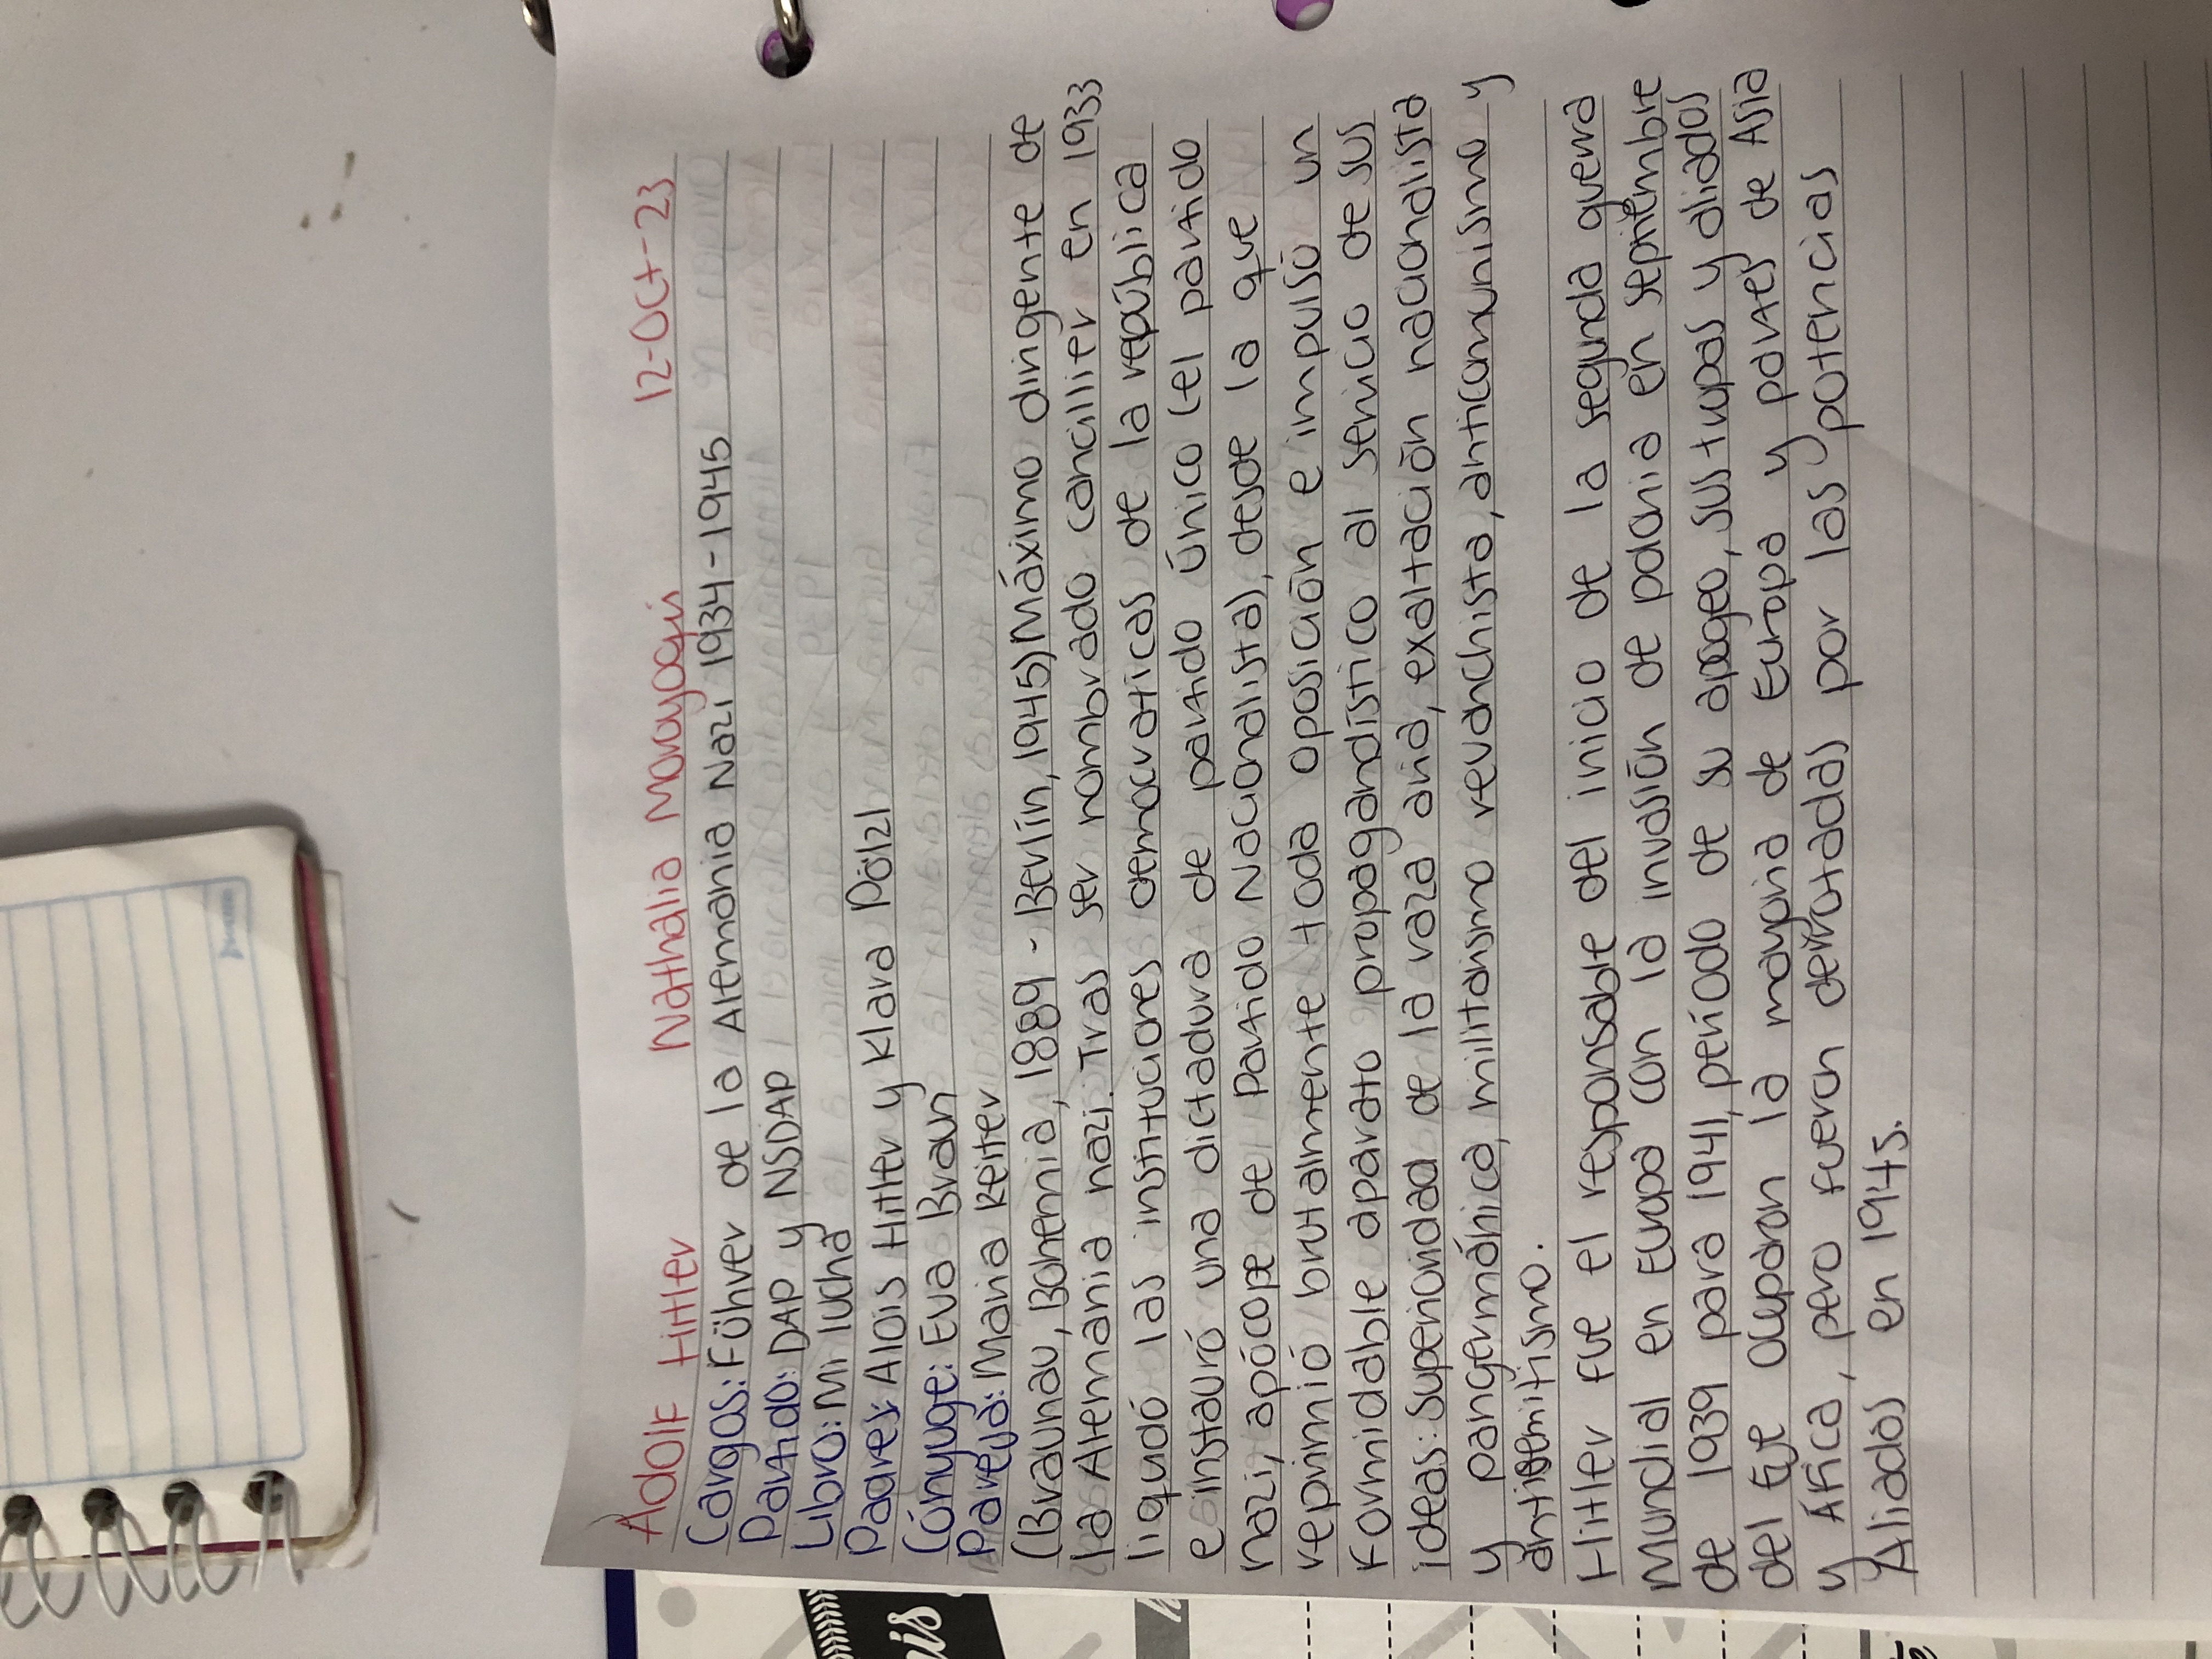 Adolf Hitler Nathalia Moroyoqui 12-Oct-23
Cargos: Führer de la Alemania Nazi 1934-1945
Partido: DAP y NSDAP
Libro: Mi lucha
Padres: Alois Hitler y Klara Pölzl
Cónyuge: Eva Braun
Pareja: Maria Reiter
(Braunau, Bohemia, 1889 - Berlín, 1945) Máximo dirigente de
la Alemania nazi. Tras ser nombrado cancillier en 1933
liquidó las instituciones democráticas de la república
e instauró una dictadura de partido único (el partido
nazi, apócope de Partido Nacionalista), desde la que
reprimió brutalmente toda oposición e impulsó un
formidable aparato propagandístico al servicio de sus
ideas: superioridad de la raza aria, exaltación nacionalista
y pangermánica, militarismo revanchista, anticomunismo y
antisemitismo.
Hitler fue el responsable del inicio de la segunda guerra
mundial en Europa con la invasión de polonia en septiembre
de 1939 para 1941, período de su apogeo, sus tropas y aliados
del Eje ocuparon la mayoria de Europa y partes de Asia
y África, pero fueron derrotadas por las potencias
Aliados en 1945.
nis